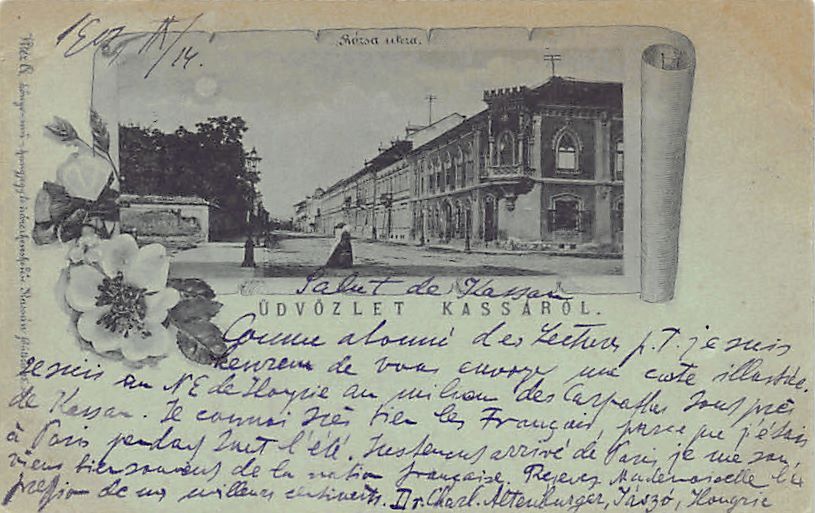 1901 IX/14.
Rózsa utcza.
Salut de Kassa
ÜDVÖZLET KASSÁRÓL.
Comme abonné des Lectures p. T. je suis
heureux de vous envoyer une carte illustrée.
Je suis au NE de Hongrie au milieu des Carpathes tout près
de Kassa. Je connai très bien les Français, parce que j'étais
à Paris pendant tout l'été. Justement arrivé de Paris je me sou
viens bien souvent de la nation française. Recevez Mademoiselle l'ex
pression de mes meilleurs sentiments. Dr. Charl. Altenburger, Jászó, Hongrie